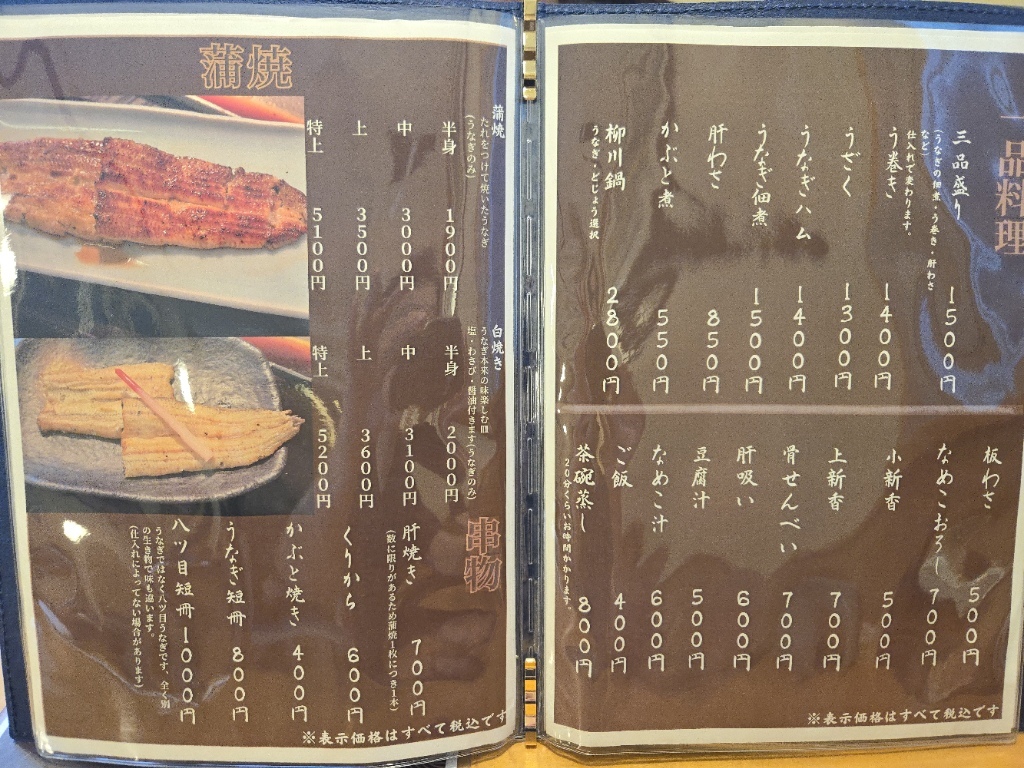 一品料理
三品盛り 1500円
(うなぎの佃煮・う巻き・肝わさ
など)
仕入れで変わります。
う巻き 1400円
うざく 1300円
うなぎハム 1400円
うなぎ佃煮 1500円
肝わさ 850円
かぶと煮 550円
柳川鍋 2800円
うなぎ・どじょう選択
板わさ 500円
なめこおろし 700円
小新香 500円
上新香 700円
骨せんべい 700円
肝吸い 600円
豆腐汁 500円
なめこ汁 600円
ご飯 400円
茶碗蒸し 800円
20分くらいお時間かかります。
※表示価格はすべて税込です
蒲焼
蒲焼
たれをつけて焼いたうなぎ
(うなぎのみ)
半身 1900円
中 3000円
上 3500円
特上 5100円
白焼き
うなぎ本来の味楽しむ皿
塩・わさび・醤油付きます(うなぎのみ)
半身 2000円
中 3100円
上 3600円
特上 5200円
串物
肝焼き 700円
(数に限りがあるため蒲焼1枚につき1本)
くりから 600円
かぶと焼き 400円
うなぎ短冊 800円
八ツ目短冊 1000円
うなぎではなく八ツ目うなぎです、全く別
の生き物で味も違います。
(仕入れによってない場合があります)
※表示価格はすべて税込です